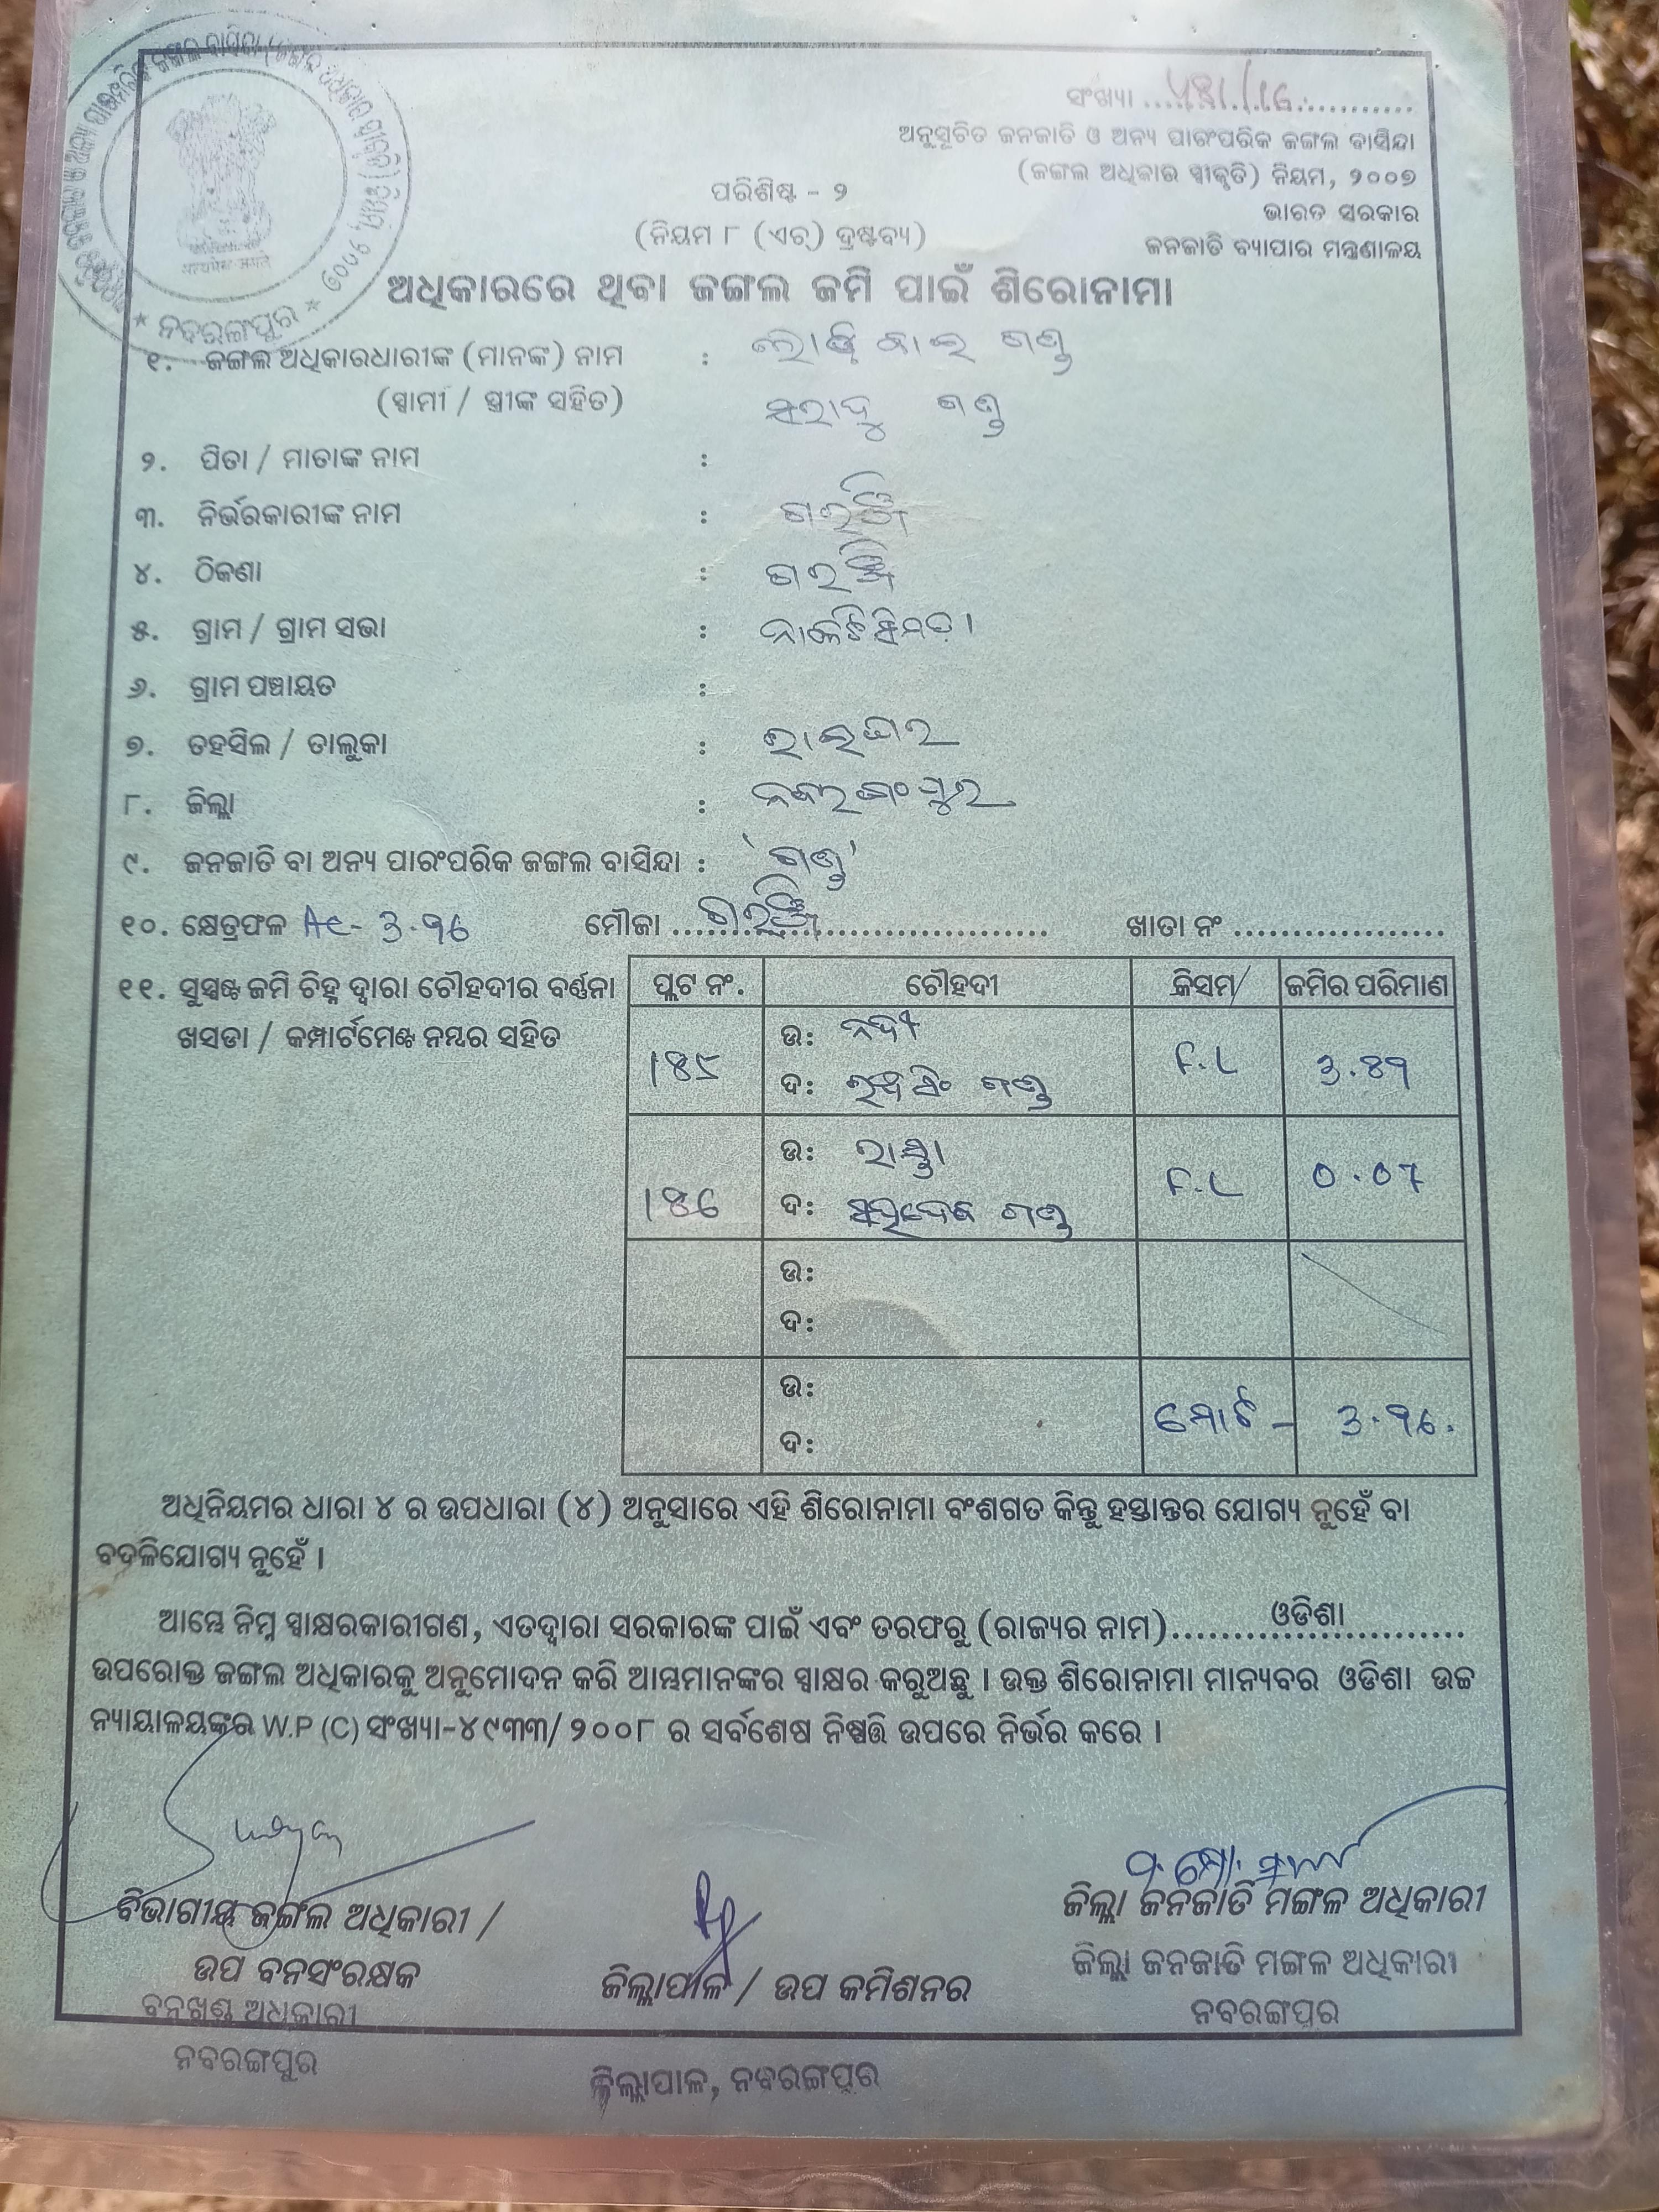 ସଂଖ୍ୟା
ଅନୁସୂଚିତ ଜନଜାତି ଓ ଅନ୍ୟ ପାରଂପରିକ ଜଙ୍ଗଲ ବାସିନ୍ଦା
(ଜଙ୍ଗଲ ଅଧିକାର ସ୍ୱୀକୃତି) ନିୟମ, ୨୦୦୭
ଭାରତ ସରକାର
ଜନଜାତି ବ୍ୟାପାର ମନ୍ତ୍ରଣାଳୟ
ପରିଶିଷ୍ଟ - ୨
(ନିୟମ ୮ (ଏଚ୍) ଦ୍ରଷ୍ଟବ୍ୟ)
ନବରଙ୍ଗପୁର
ଅଧିକାରରେ ଥିବା ଜଙ୍ଗଲ ଜମି ପାଇଁ ଶିରୋନାମା
୧. ଜଙ୍ଗଲ ଅଧିକାରଧାରୀଙ୍କ (ମାନଙ୍କ) ନାମ : ଗଣ୍ଡ
(ସ୍ୱାମୀ / ସ୍ତ୍ରୀଙ୍କ ସହିତ) ଗଣ୍ଡ
୨. ପିତା / ମାତାଙ୍କ ନାମ :
୩. ନିର୍ଭରକାରୀଙ୍କ ନାମ :
୪. ଠିକଣା :
୫. ଗ୍ରାମ / ଗ୍ରାମ ସଭା :
୬. ଗ୍ରାମ ପଞ୍ଚାୟତ :
୭. ତହସିଲ / ତାଲୁକା : ରାଇଘର
୮. ଜିଲ୍ଲା : ନବରଂଗପୁର
୯. ଜନଜାତି ବା ଅନ୍ୟ ପାରଂପରିକ ଜଙ୍ଗଲ ବାସିନ୍ଦା : 'ଗଣ୍ଡ'
୧୦. କ୍ଷେତ୍ରଫଳ Ac- 3.96 ମୌଜା ଖାତା ନଂ
୧୧. ସୁସ୍ପଷ୍ଟ ଜମି ଚିହ୍ନ ଦ୍ୱାରା ଚୌହଦୀର ବର୍ଣ୍ଣନା
ଖସଡା / କମ୍ପାର୍ଟମେଣ୍ଟ ନମ୍ବର ସହିତ
ପ୍ଲଟ ନଂ. ଚୌହଦୀ କିସମ/ ଜମିର ପରିମାଣ
185 ଉ: ନଦୀ F.L 3.89
ଦ: ଗଣ୍ଡ
186 ଉ: ରାସ୍ତା F.L 0.07
ଦ: ଗଣ୍ଡ
ଉ:
ଦ:
ଉ: ମୋଟ - 3.96.
ଦ:
ଅଧିନିୟମର ଧାରା ୪ ର ଉପଧାରା (୪) ଅନୁସାରେ ଏହି ଶିରୋନାମା ବଂଶଗତ କିନ୍ତୁ ହସ୍ତାନ୍ତର ଯୋଗ୍ୟ ନୁହେଁ ବା
ବଦଳିଯୋଗ୍ୟ ନୁହେଁ ।
ଆମ୍ଭେ ନିମ୍ନ ସ୍ୱାକ୍ଷରକାରୀଗଣ, ଏତଦ୍ୱାରା ସରକାରଙ୍କ ପାଇଁ ଏବଂ ତରଫରୁ (ରାଜ୍ୟର ନାମ) ଓଡିଶା
ଉପରୋକ୍ତ ଜଙ୍ଗଲ ଅଧିକାରକୁ ଅନୁମୋଦନ କରି ଆମ୍ଭମାନଙ୍କର ସ୍ୱାକ୍ଷର କରୁଅଛୁ । ଉକ୍ତ ଶିରୋନାମା ମାନ୍ୟବର ଓଡିଶା ଉଚ୍ଚ
ନ୍ୟାୟାଳୟଙ୍କର W.P (C) ସଂଖ୍ୟା-୪୯୩୩/୨୦୦୮ ର ସର୍ବଶେଷ ନିଷ୍ପତ୍ତି ଉପରେ ନିର୍ଭର କରେ ।
ବିଭାଗୀୟ ଜଙ୍ଗଲ ଅଧିକାରୀ /
ଉପ ବନସଂରକ୍ଷକ
ବନଖଣ୍ଡ ଅଧିକାରୀ
ନବରଙ୍ଗପୁର
ଜିଲ୍ଲାପାଳ / ଉପ କମିଶନର
ଜିଲ୍ଲାପାଳ, ନବରଙ୍ଗପୁର
ଜିଲ୍ଲା ଜନଜାତି ମଙ୍ଗଳ ଅଧିକାରୀ
ଜିଲ୍ଲା ଜନଜାତି ମଙ୍ଗଳ ଅଧିକାରୀ
ନବରଙ୍ଗପୁର